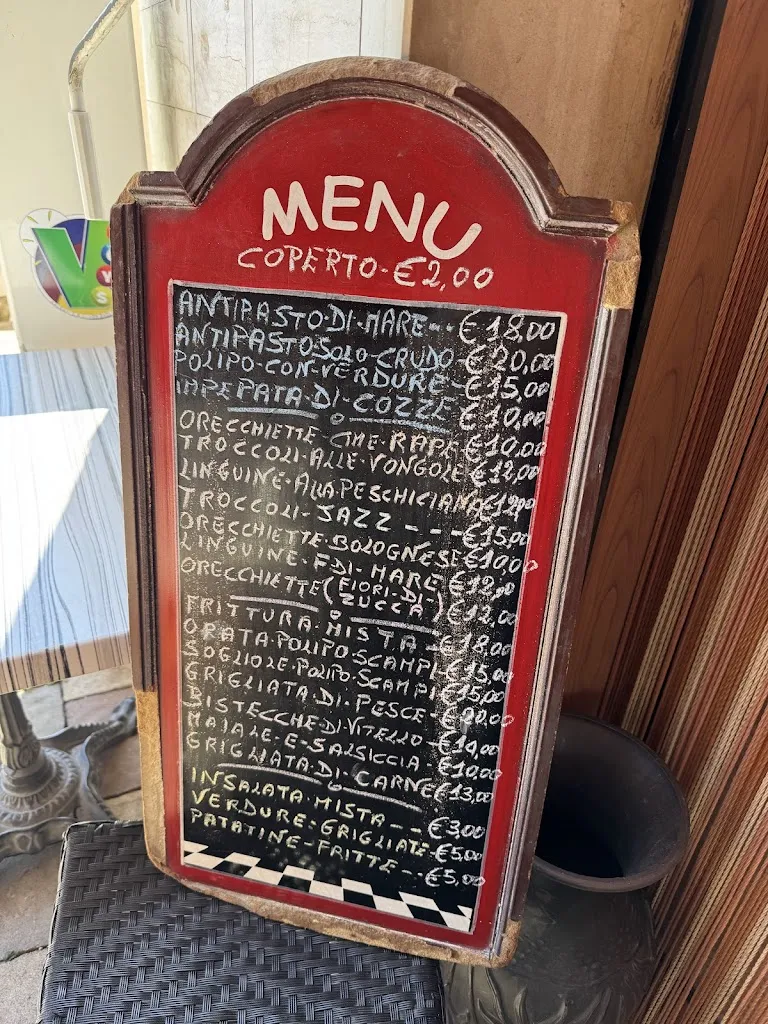 MENU
COPERTO-€2,00
ANTIPASTO·DI·MARE--·€18,00
ANTIPASTO SOLO-CRUDO-€20,00
POLIPO-CON-VERDURE-€15,00
IMPEPATA·DI-COZZE €10,00
ORECCHIETTE-CIME-RAPE €10,00
TROCCOLI-ALLE-VONGOLE €12,00
LINGUINE·ALLA·PESCHICIANA €12,00
TROCCOLI-JAZZ----€15,00
ORECCHIETTE·BOLOGNESE €10,00
LINGUINE·F·DI·MARE €12,00
ORECCHIETTE (FIORI-DI-ZUCCA) €12,00
FRITTURA·MISTA-€18,00
ORATA·POLIPO·SCAMPI €15,00
SOGLIOLE·POLIPO·SCAMPI €15,00
GRIGLIATA·DI·PESCE-€20,00
BISTECCHE·DI·VITELLO-€14,00
MAIALE·E·SALSICCIA-€10,00
GRIGLIATA·DI·CARNE €13,00
INSALATA·MISTA--€3,00
VERDURE·GRIGLIATE·€5,00
PATATINE·FRITTE--€5,00
V